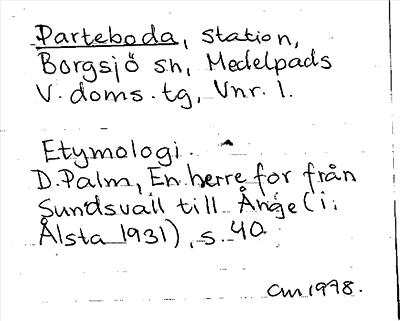 Parteboda, station,
Borgsjö sn, Medelpads
V. doms. tg, Vnr. 1.
Etymologi.
D. Palm, En herre for från
Sundsvall till Ånge (i:
Ålsta 1931), s. 40
1978.